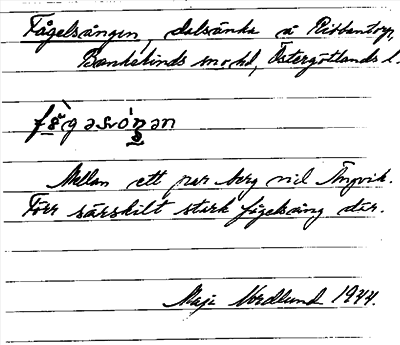 Fågelsången, dalsänka å Ribbantorp,
Bankekinds sn o hd, Östergötlands l.
Mellan ett par berg vid Ängvik.
Förr särskilt stark fågelsång där.
Maja Nordlund 1944.